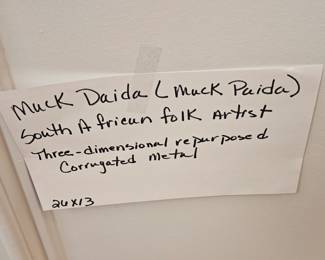 Muck Daida (Muck Paida)
South African folk Artist
Three-dimensional repurposed
Corrugated Metal
26x13